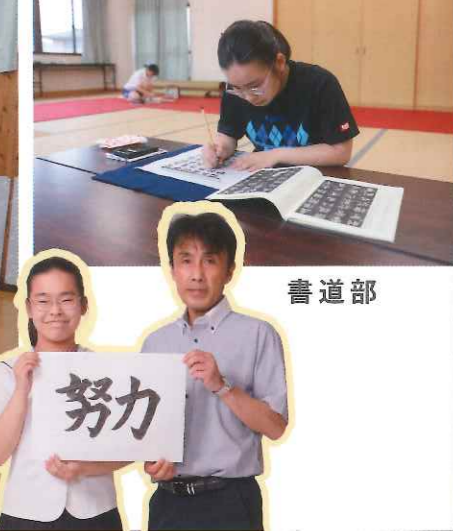 書道部
努力